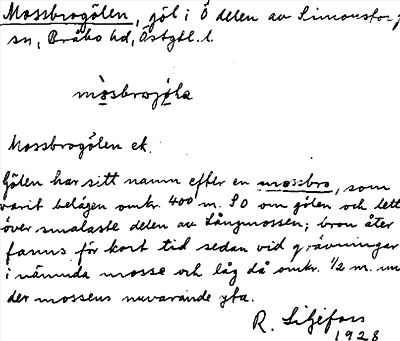 Mossbrogölen, göl i Ö delen av Simonstorps
sn, Bråbo hd, Östgtl. l.
mòsbrojø̀la
Mossbrogölen ek.
Gölen har sitt namn efter en mossbro, som
varit belägen omkr. 400 m. SO om gölen och lett
över smalaste delen av Långmossen; bron åter
fanns för kort tid sedan vid grävningar
i nämnda mosse och låg då omkr. 1/2 m. un
der mossens nuvarande yta.
R. Liljefors
1928